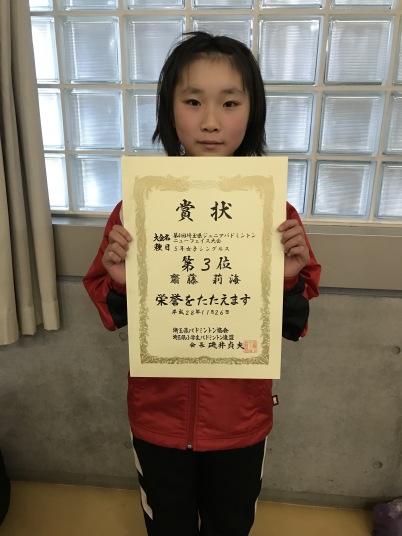 賞状
大会名 第4回埼玉県ジュニアバドミントン
ニューフェイス大会
種目 5年女子シングルス
第3位
齋藤 莉海
栄誉をたたえます
平成28年11月26日
埼玉県バドミントン協会
埼玉県小学生バドミントン連盟
会長 磯井貞夫